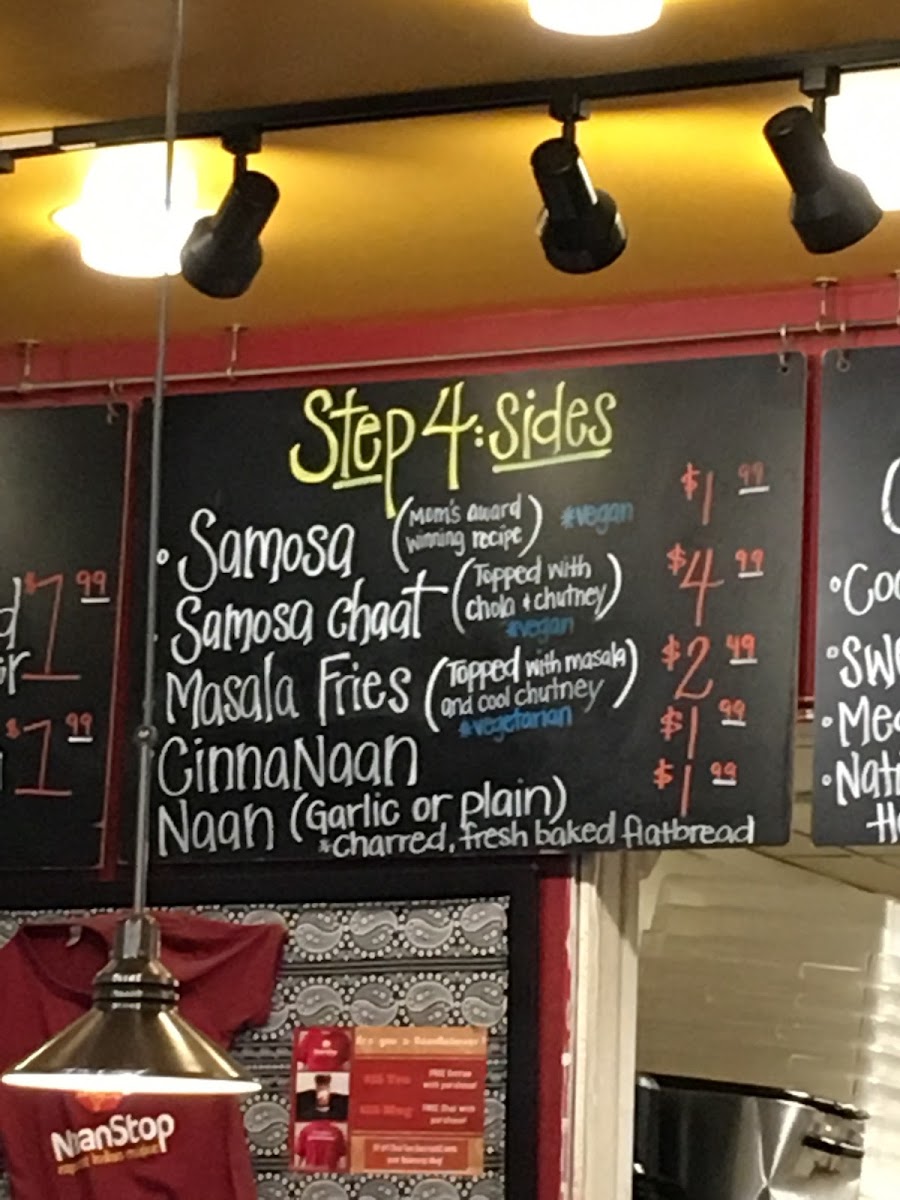 Step 4: Sides
• Samosa (Mom's award winning recipe) *vegan $1 99
Samosa chaat (Topped with chola + chutney) *vegan $4 99
Masala Fries (Topped with masala and cool chutney) *vegetarian $2 49
CinnaNaan $1 99
Naan (Garlic or plain) $1 99
*charred, fresh baked flatbread
$1 99
$1 99
• Coo
• Swe
• Me
• Nat
NaanStop
FREE
with purchase!
FREE
purchase!